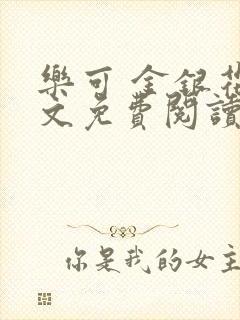 樂可 金銀花
文免費閱讀
你是我的女主